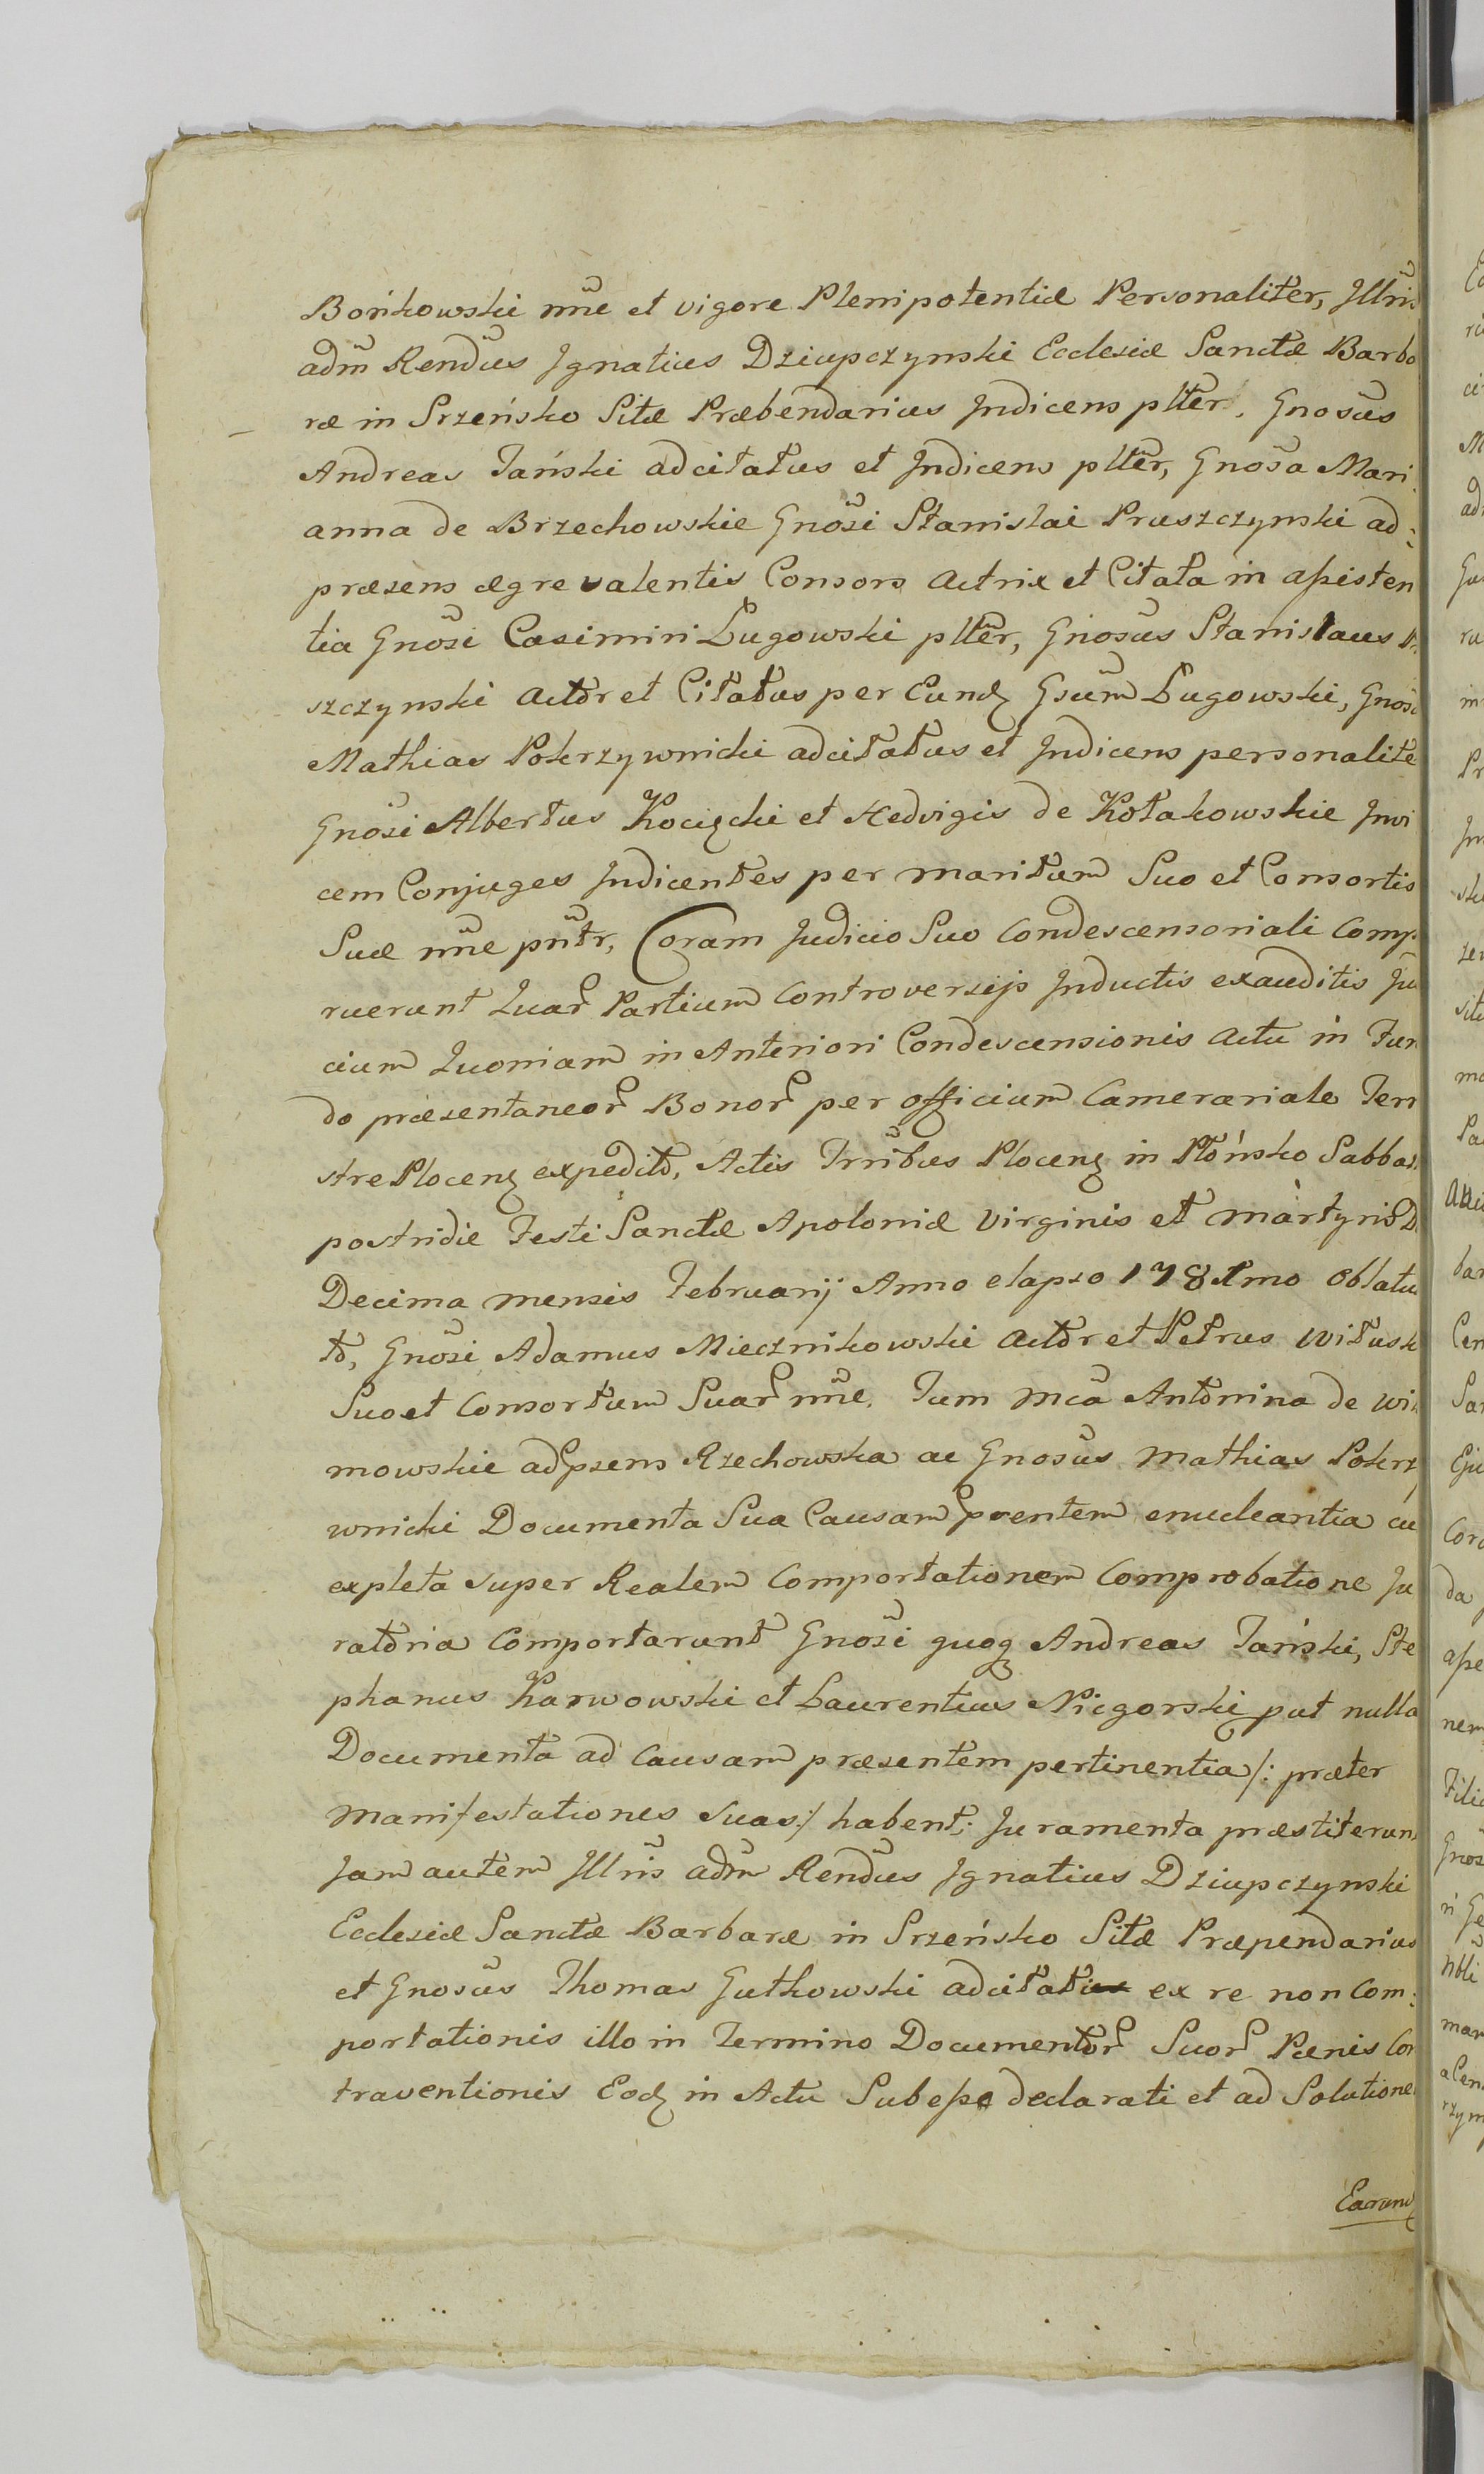 Bońkowski nn̄e et vigore Plenipotentiæ Personaliter, Jlln̄is
adm̄ Rendūs Jgnatius Dziupczynski Ecclesiæ Sanctæ Barba
ræ in Srzeńsko Sitæ Præbendarius Jndicens pltēr, Gnosūs
Andreas Tański adcitatus et Jndicens pltēr, Gnosā Mari
anna de Brzechowskie Gnosī Stanislai Pruszczynski ad
præsens ægre valentis Consors Actrix et Citata in assisten
tia Gnosī Casimiri Ługowski pltēr, Gnosūs Stanislaus
szczynski Actor et Citatus per Eund Gsūm Ługowski, Gnosū
Mathias Pokrzywnicki adcitatus et Jndicens personalite
Gnosī Albertus Kocięcki et Hedvigis de Kołakowskie Jnvi
cem Conjuges Jndicentes per maritum Suo et Consortis
Suæ nn̄e pn̄tr, Coram Judicio Suo Condescensoriali Comp
ruerunt Quar Partium Controversijs Jnductis exauditis Ju
cium Quoniam in Anteriori Condescensionis Actu in Fun
do præsentaneor Bonor per officium Camerariale Terr
stre Plocen expedito, Actis Trribus Plocen in Płońsko Sabba
postridie Festi Sanctæ Apoloniæ Virginis et Martyris D
Decima mensis Februarij Anno elapso 178 1mo Oblatu
to, Gnosī Adamus Miecznikowski Actor et Petrus Witusk
Suo et Consortum Suar nn̄e, Tum Mcā Antonina de Wi
mowskie adpsens Rzechowska ac Gnosūs Mathias Pokrz
wnicki Documenta Sua Causam pventem enucleantia cu
expleta super Realem Comportationem Comprobatione Ju
ratoria Comportarunt Gnosī quoq Andreas Tański, Ste
phanus Karwowski et Laurentius Niegorski put nulla
Documenta ad Causam præsentem pertinentia /: præter
Manifestationes Suas :/ habent; Juramenta præstiterunt
Jam autem Jlln̄is adm̄ Rendūs Jgnatius Dziupczynski
Ecclesiæ Sanctæ Barbaræ in Srzeńsko Sitæ Præpendarius
et Gnosūs Thomas Gutkowski adcitati ex re non Com:
portationis illo in Termino Documentor Suor Pænis Con
traventionis Eod in Actu Subesse declarati et ad Solutione
Earund